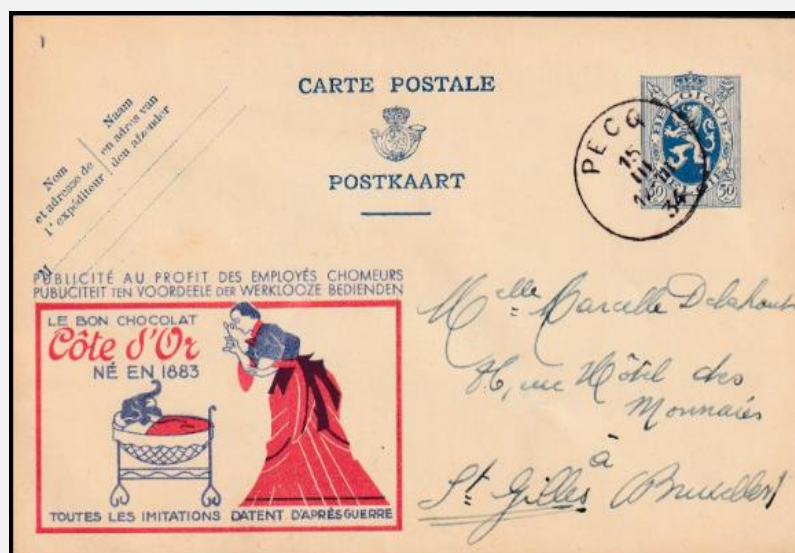 CARTE POSTALE
POSTKAART
Nom
et adresse de
l'expéditeur
Naam
en adres van
den afzender
BELGIQUE
50 50
PECQ
15
III
34
PUBLICITÉ AU PROFIT DES EMPLOYÉS CHOMEURS
PUBLICITEIT TEN VOORDEELE DER WERKLOOZE BEDIENDEN
LE BON CHOCOLAT
Côte d'Or
NÉ EN 1883
TOUTES LES IMITATIONS DATENT D'APRÈS GUERRE
Melle Marcelle
rue Hôtel des
Monnaies
à
St Gilles